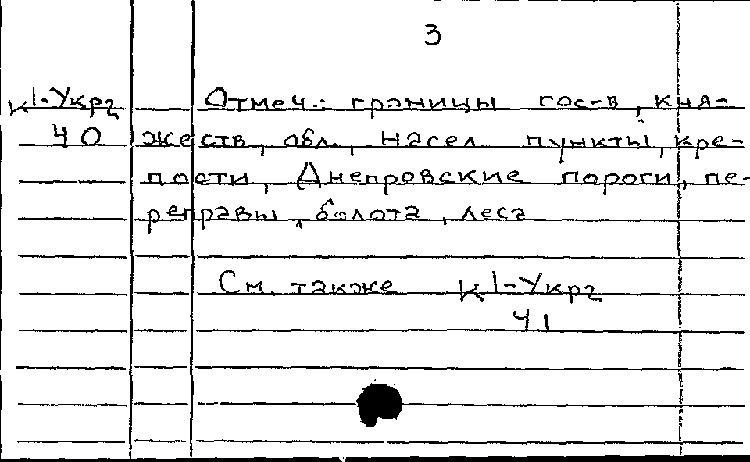 3
К1-Укр2 Отмеч.: границы гос-в, кня-
40 жеств, обл., насел пункты, кре-
пости, Днепровские пороги, пе-
реправы, болота, леса
См. также К1-Укр2
41